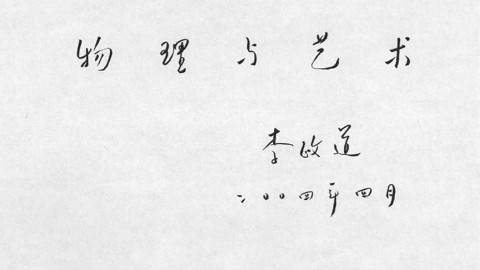 物理与艺术
李政道
二〇〇四年四月